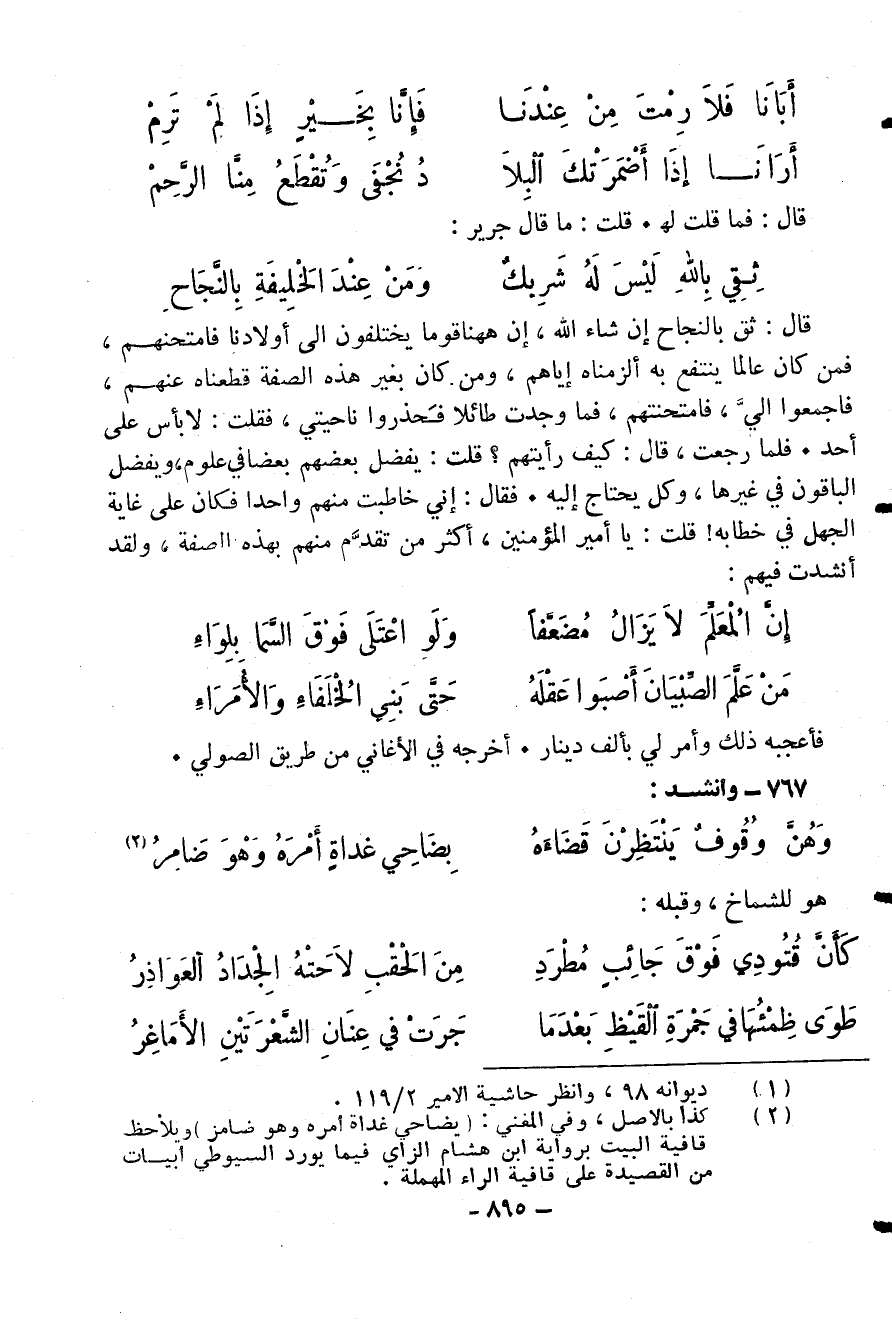 أَبَانَا فَلاَ رِمْتَ مِنْ عِنْدَنَا فَإِنَّا بِخَيْرٍ إِذَا لَمْ تَرِمْ
أَرَانَا إِذَا أَضْمَرَتْكَ ٱلْبِلاَ دُ نُجْفَى وَتُقْطَعُ مِنَّا الرَّحِمْ
قال : فما قلت له • قلت : ما قال جرير :
ثِقِي بِاللهِ لَيْسَ لَهُ شَرِيكٌ وَمَنْ عِنْدَ الْخَلِيفَةِ بِالنَّجَاحِ
قال : ثق بالنجاح إن شاء الله ، إن ههناقوما يختلفون الى أولادنا فامتحنهم ،
فمن كان عالما ينتفع به ألزمناه إياهم ، ومن كان بغير هذه الصفة قطعناه عنهم ،
فاجمعوا اليَّ ، فامتحنتهم ، فما وجدت طائلا فحذروا ناحيتي ، فقلت : لابأس على
أحد • فلما رجعت ، قال : كيف رأيتهم ؟ قلت : يفضل بعضهم بعضافي علوم،ويفضل
الباقون في غيرها ، وكل يحتاج إليه • فقال : إني خاطبت منهم واحدا فكان على غاية
الجهل في خطابه! قلت : يا أمير المؤمنين ، أكثر من تقدَّم منهم بهذه الصفة ، ولقد
أنشدت فيهم :
إِنَّ الْمُعَلِّمَ لاَ يَزَالُ مُضَعَّفاً وَلَوِ اعْتَلَى فَوْقَ السَّمَا بِلِوَاءِ
مَنْ عَلَّمَ الصِّبْيَانَ أَصْبَوا عَقْلَهُ حَتَّى بَنِي الْخُلَفَاءِ وَالأُمَرَاءِ
فأعجبه ذلك وأمر لي بألف دينار • أخرجه في الأغاني من طريق الصولي •
٧٦٧ – وانشد :
وَهُنَّ وُقُوفٌ يَنْتَظِرْنَ قَضَاءَهُ بِضَاحِي غَداةٍ أَمْرَهُ وَهْوَ ضَامِرُ (٢)
هو للشماخ ، وقبله :
كَأَنَّ قُتُودِي فَوْقَ جَائِبٍ مُطْرَدِ مِنَ الْحُقْبِ لاَحَتْهُ الْجِدَادُ ٱلعَوَاذِرُ
طَوَى ظِمْئُهَا في جَمْرَةِ ٱلْقَيْظِ بَعْدَمَا جَرَتْ في عِنَانِ الشَّعْرَتَيْنِ الأَمَاغِرُ
(١) ديوانه ٩٨ ، وانظر حاشية الامير ١١٩/٢ .
(٢) كذا بالاصل ، وفي المغني : (بضاحي غداة أمره وهو ضامز) ويلاحظ
قافية البيت برواية ابن هشام الزاي فيما يورد السيوطي أبيات
من القصيدة على قافية الراء المهملة .
– ٨٩٥ –